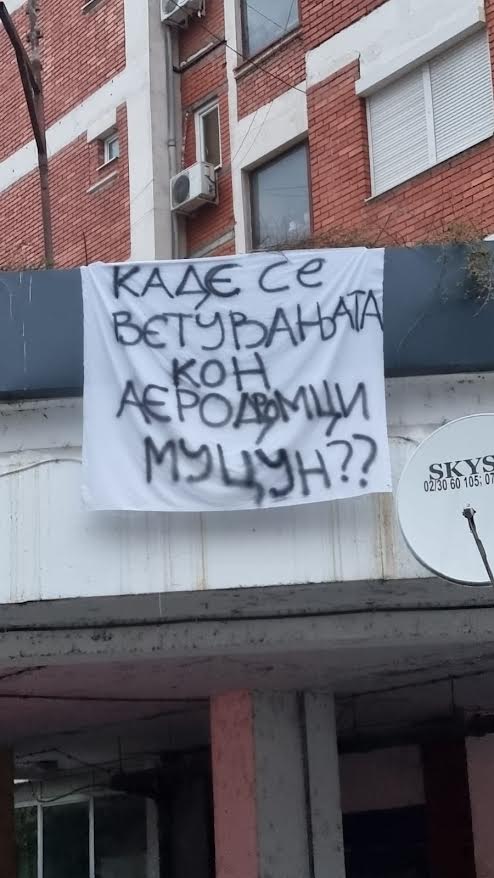 КАДЕ СЕ
ВЕТУВАЊАТА
КОН
АЕРОДРОМЦИ
МУЦУН??
SKYS
02/30 60 105; 07